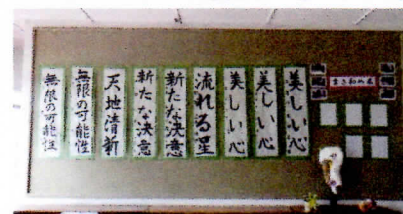 書き初め展
美しい心
美しい心
美しい心
流れる星
新たな決意
新たな決意
天地清新
無限の可能性
無限の可能性